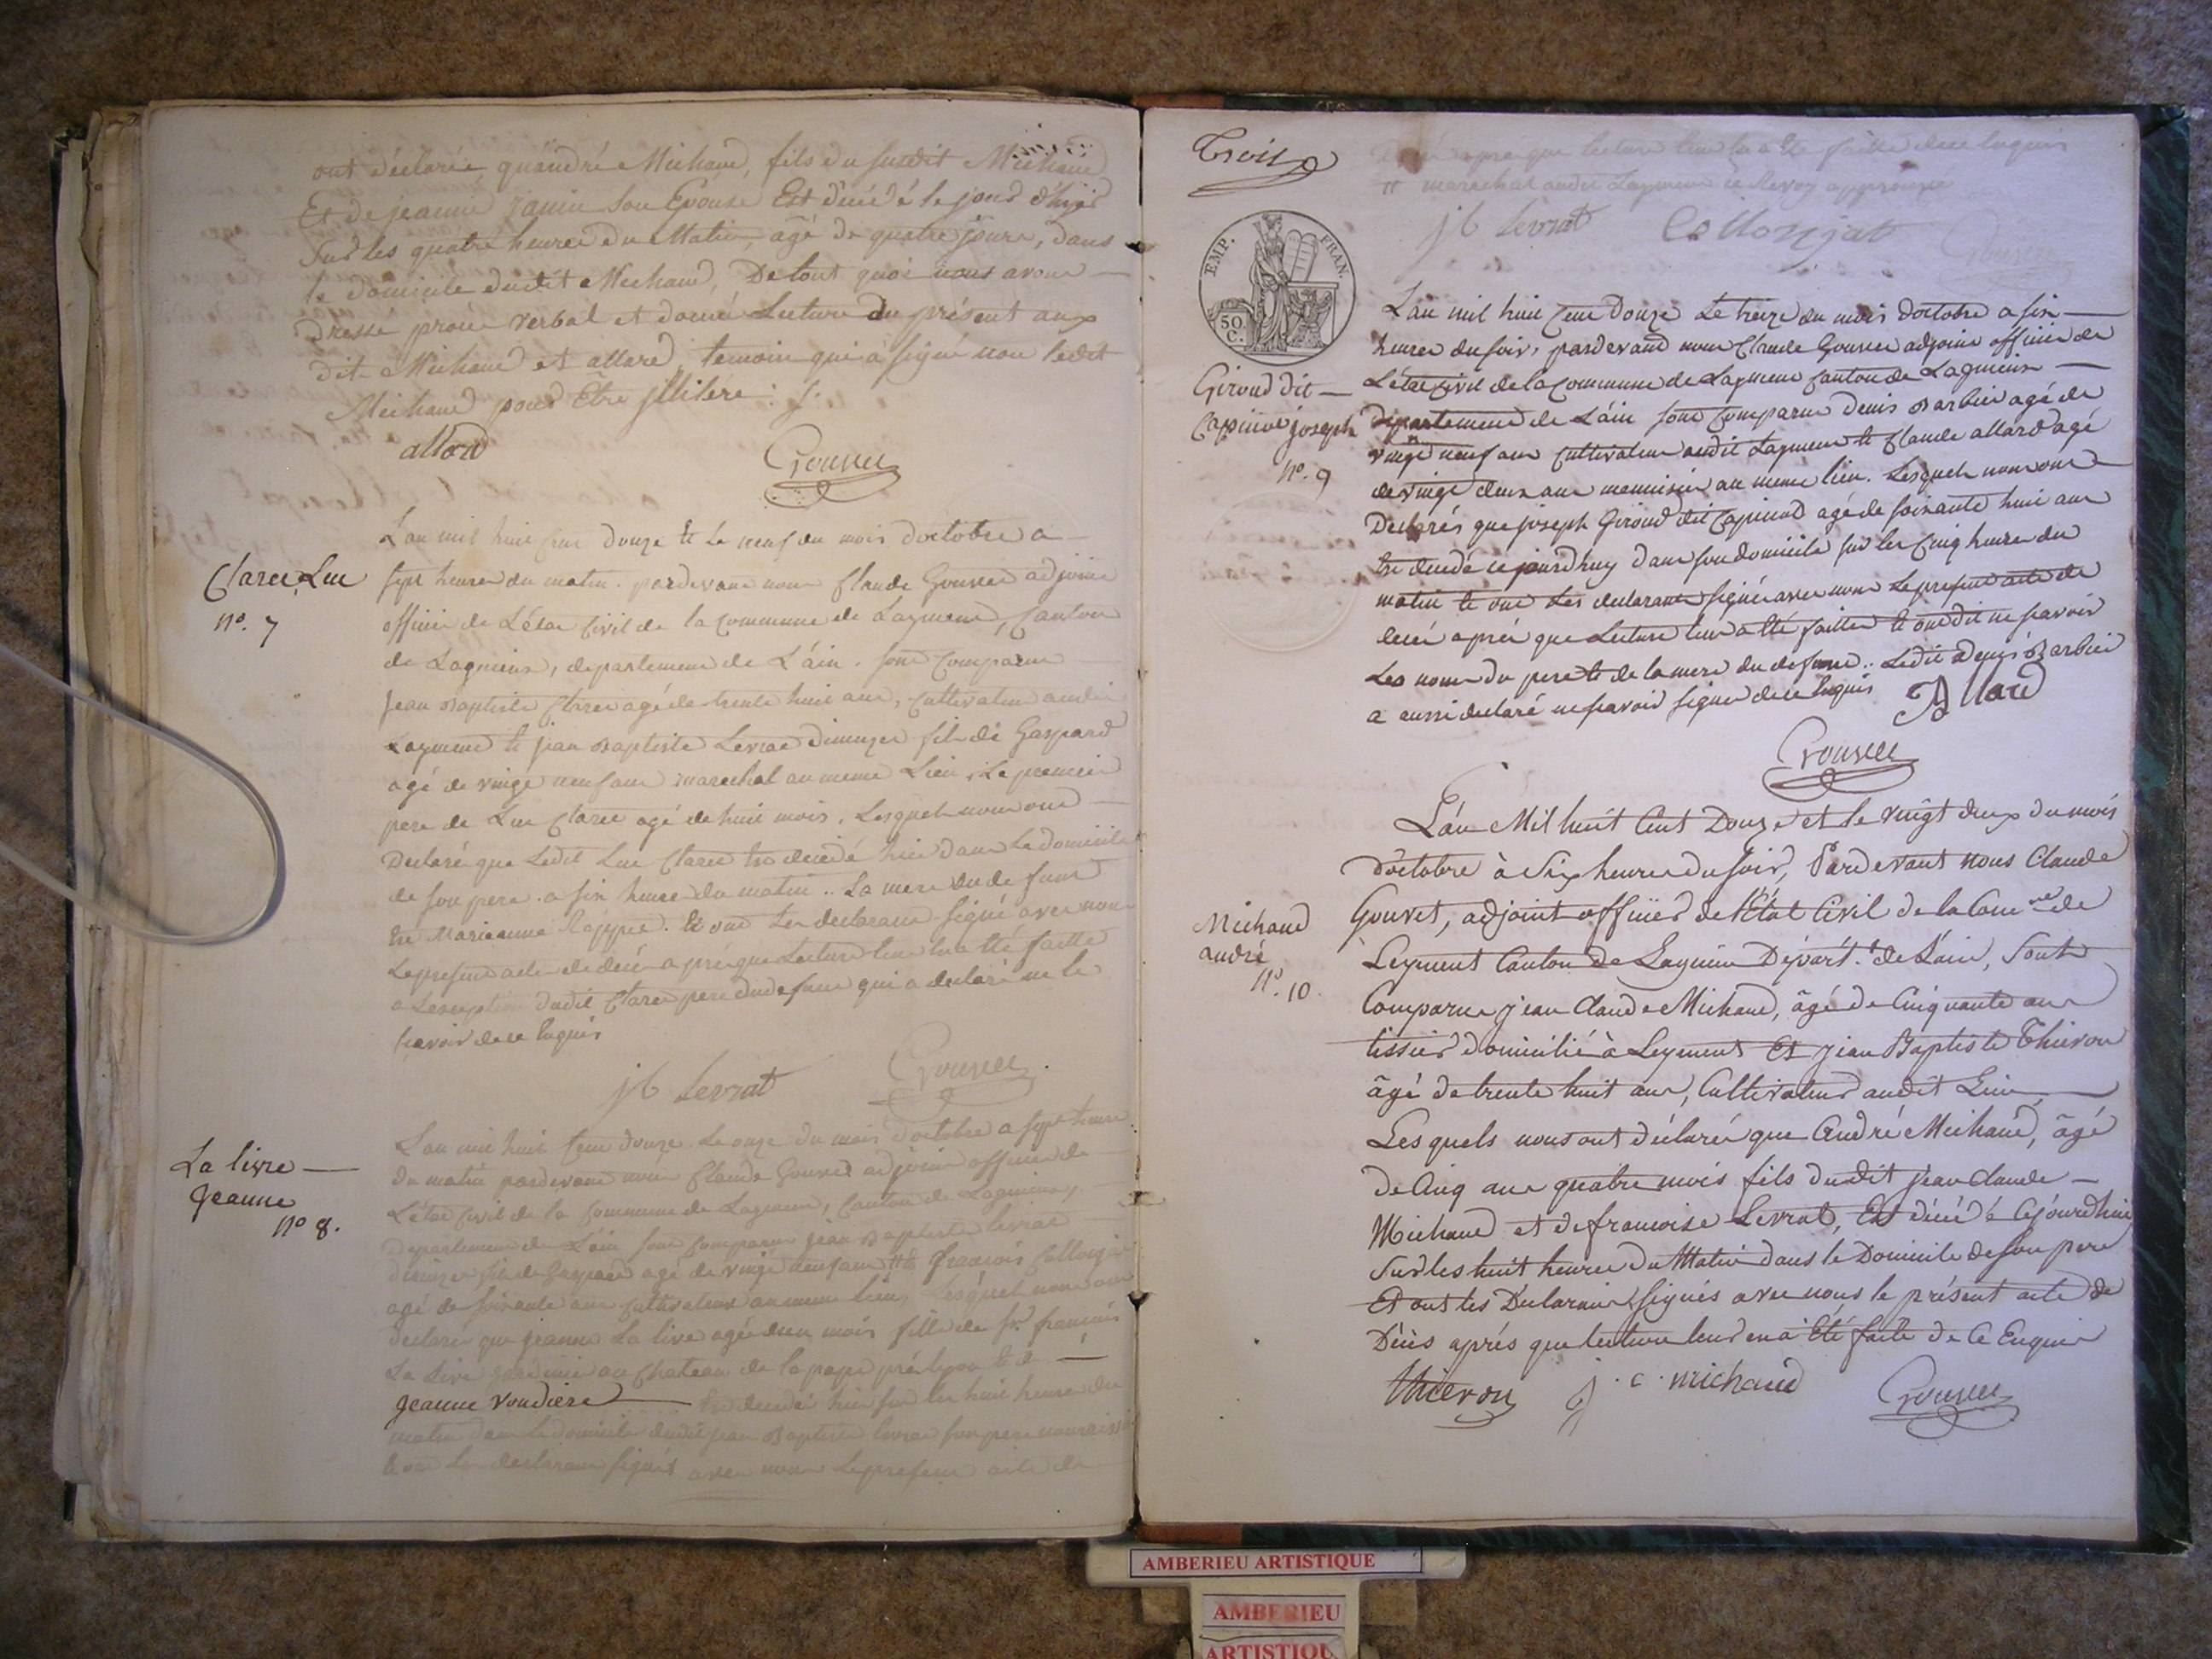 ont déclarée, quandré Michaud, fils du susdit Michaud
Et de jeanne janin son Epouse Est décédé le jour d'hier
Sur les quatre heures du Matin, âgé de quatre jours, dans
le domicile dudit Michaud, De tout quoi nous avons
dressé procès verbal et donné Lecture du présent aux
dit Michaud et allard, temoin qui à signé non ledit
Michaud pour Etre
allard
Gouvet
Clare Luc
nº. 7
L'an mil huit cent douze et le neuf du mois doctobre a
sept heures du matin. pardevant nous Claude Gouvet adjoint
officier de L'état civil de la commune de Layment, canton
de Lagnieux, departement de L'áin. sont comparu
jean Baptiste Claret agé de trente huit ans, cultivateur audit
Layment et jean Baptiste Levrat fils de Gaspard
agé de vingt neuf ans marechal au meme Lieu. Le premier
pere de Luc Claret agé de huit mois. Lesquels nous ont
Declaré que Ledit Luc Claret est decedé hier dans Le domicile
de son pere. a six heures du matin.. La mere du defunt
est Marieanne. et ont Les declarants signé avec nous
Le present acte de decé apres que Lecture leur en a eté faitte
a Lexception dudit Claret pere du defunt qui a declaré ne le
scavoir de ce Enquis
jb Levrat
Gouvet
La livre
Jeanne
nº 8.
L'an mil huit cent douze Le onze du mois doctobre a sept heures
du matin pardevant nous Claude Gouvet adjoint officier de
L'état civil de la commune de Layment, canton de Lagnieux
Departement de L'ain sont comparu jean Baptiste levrat
fils de Gaspard agé de vingt neuf ans et francois Collonjat
agé de soixante ans cultivateur au meme lieu, Lesquels nous ont
declaré que jeanne La live agé dun mois fille de sr. francois
La Live au chateau de la pape prè lyon et de
Jeanne Voudiere est decedé hier sur les huit heures du
matin dans Le domicile dudit jean Baptiste levrat son pere nourricier
et ont Les declarants signés avec nous Le present acte de
Trois
decé apres que lecture leur en a eté faitte de ce Enquis
marechal audit Layment ce Renvoy approuvé
jb Levrat
Collonjat
EMP. FRAN.
50 C.
Giroud dit
Capinod joseph
Nº. 9
L'an mil huit cent douze Le treize du mois doctobre a six
heures du soir, pardevant nous Claude Gouvet adjoint officier de
L'état civil de la commune de Layment canton de Lagnieux
département de L'áin sont comparu denis Barbier agé de
vingt neuf ans cultivateur audit Layment et Claude allard agé
de vingt deux ans menuisier au meme lieu. Lesquels nous ont
Declarés que joseph Giroud dit Capinod agé de soixante huit ans
est decedé cejourdhuy dans son domicile sur les cinq heures du
matin et ont Les declarants signé avec nous Le present acte de
decé aprés que Lecture leur a eté faitte et ont dit ne scavoir
Les noms du pere et de la mere du defunt.. Ledit denis Barbier
a aussi declaré ne scavoir signer de ce Enquis
Allard
Gouvet
Michaud
andré
Nº. 10.
L'an Mil huit Cent Douze et le vingt deux du mois
d'octobre à Six heures du soir, Pardevant nous Claude
Gouvet, adjoint officier de l'Etat Civil de la Comne de
Leyment Canton de Lagnieu Départ.t de L'ain, Sont
Comparus jean Claude Michaud, âgé de Cinquante ans
tissier domicilié à Leyment Et jean Baptiste Thievon
âgé de trente huit ans, Cultivateur audit Lieu,
Lesquels nous ont déclaré que André Michaud, âgé
de Cinq ans quatre mois fils dudit jean claude
Michaud et de francoise Levrat, Est décédé Cejourd'hui
Sur les huit heures du Matin dans le Domicile de son pere
Et ont les Declarans signés avec nous le présent acte de
Décès aprés que lecture leur en à Eté faite de Ce Enquis
thievon
j. c. michaud
Gouvet
AMBERIEU ARTISTIQUE
AMBERIEU
ARTISTIQU